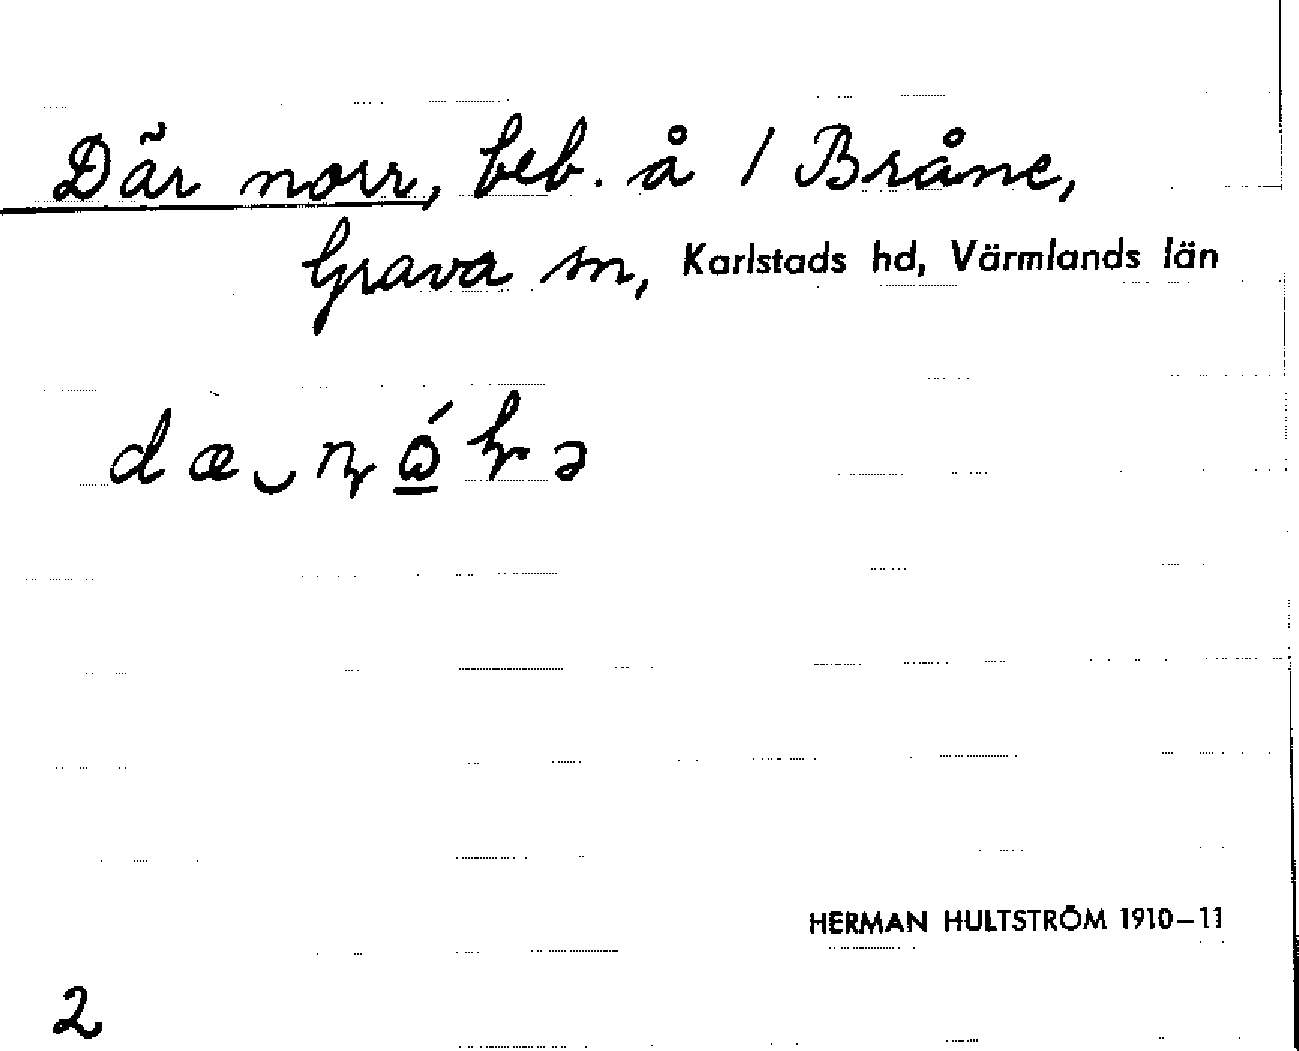 Där norr, beb. å 1 Bråne,
Grava sn, Karlstads hd, Värmlands län
HERMAN HULTSTRÖM 1910–11
2